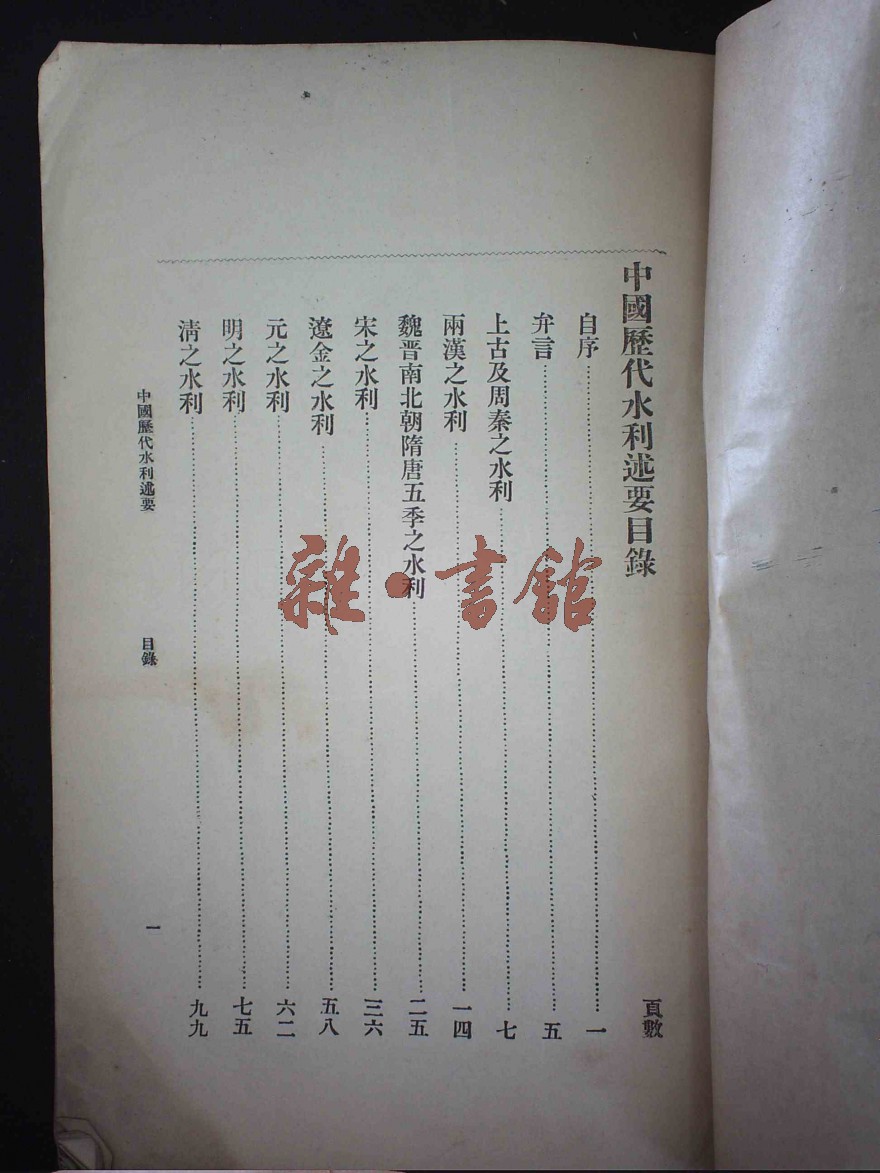 中國歷代水利述要目錄
頁數
自序 一
弁言 五
上古及周秦之水利 七
兩漢之水利 一四
魏晋南北朝隋唐五季之水利 二五
宋之水利 三六
遼金之水利 五八
元之水利 六二
明之水利 七五
淸之水利 九九
中國歷代水利述要 目錄 一
雜·書館